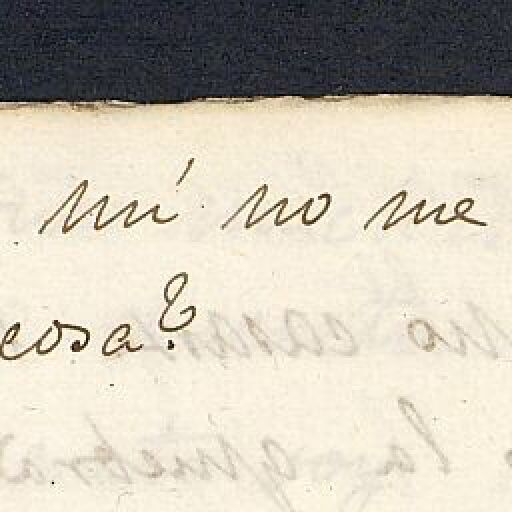 mí no me
cosa?